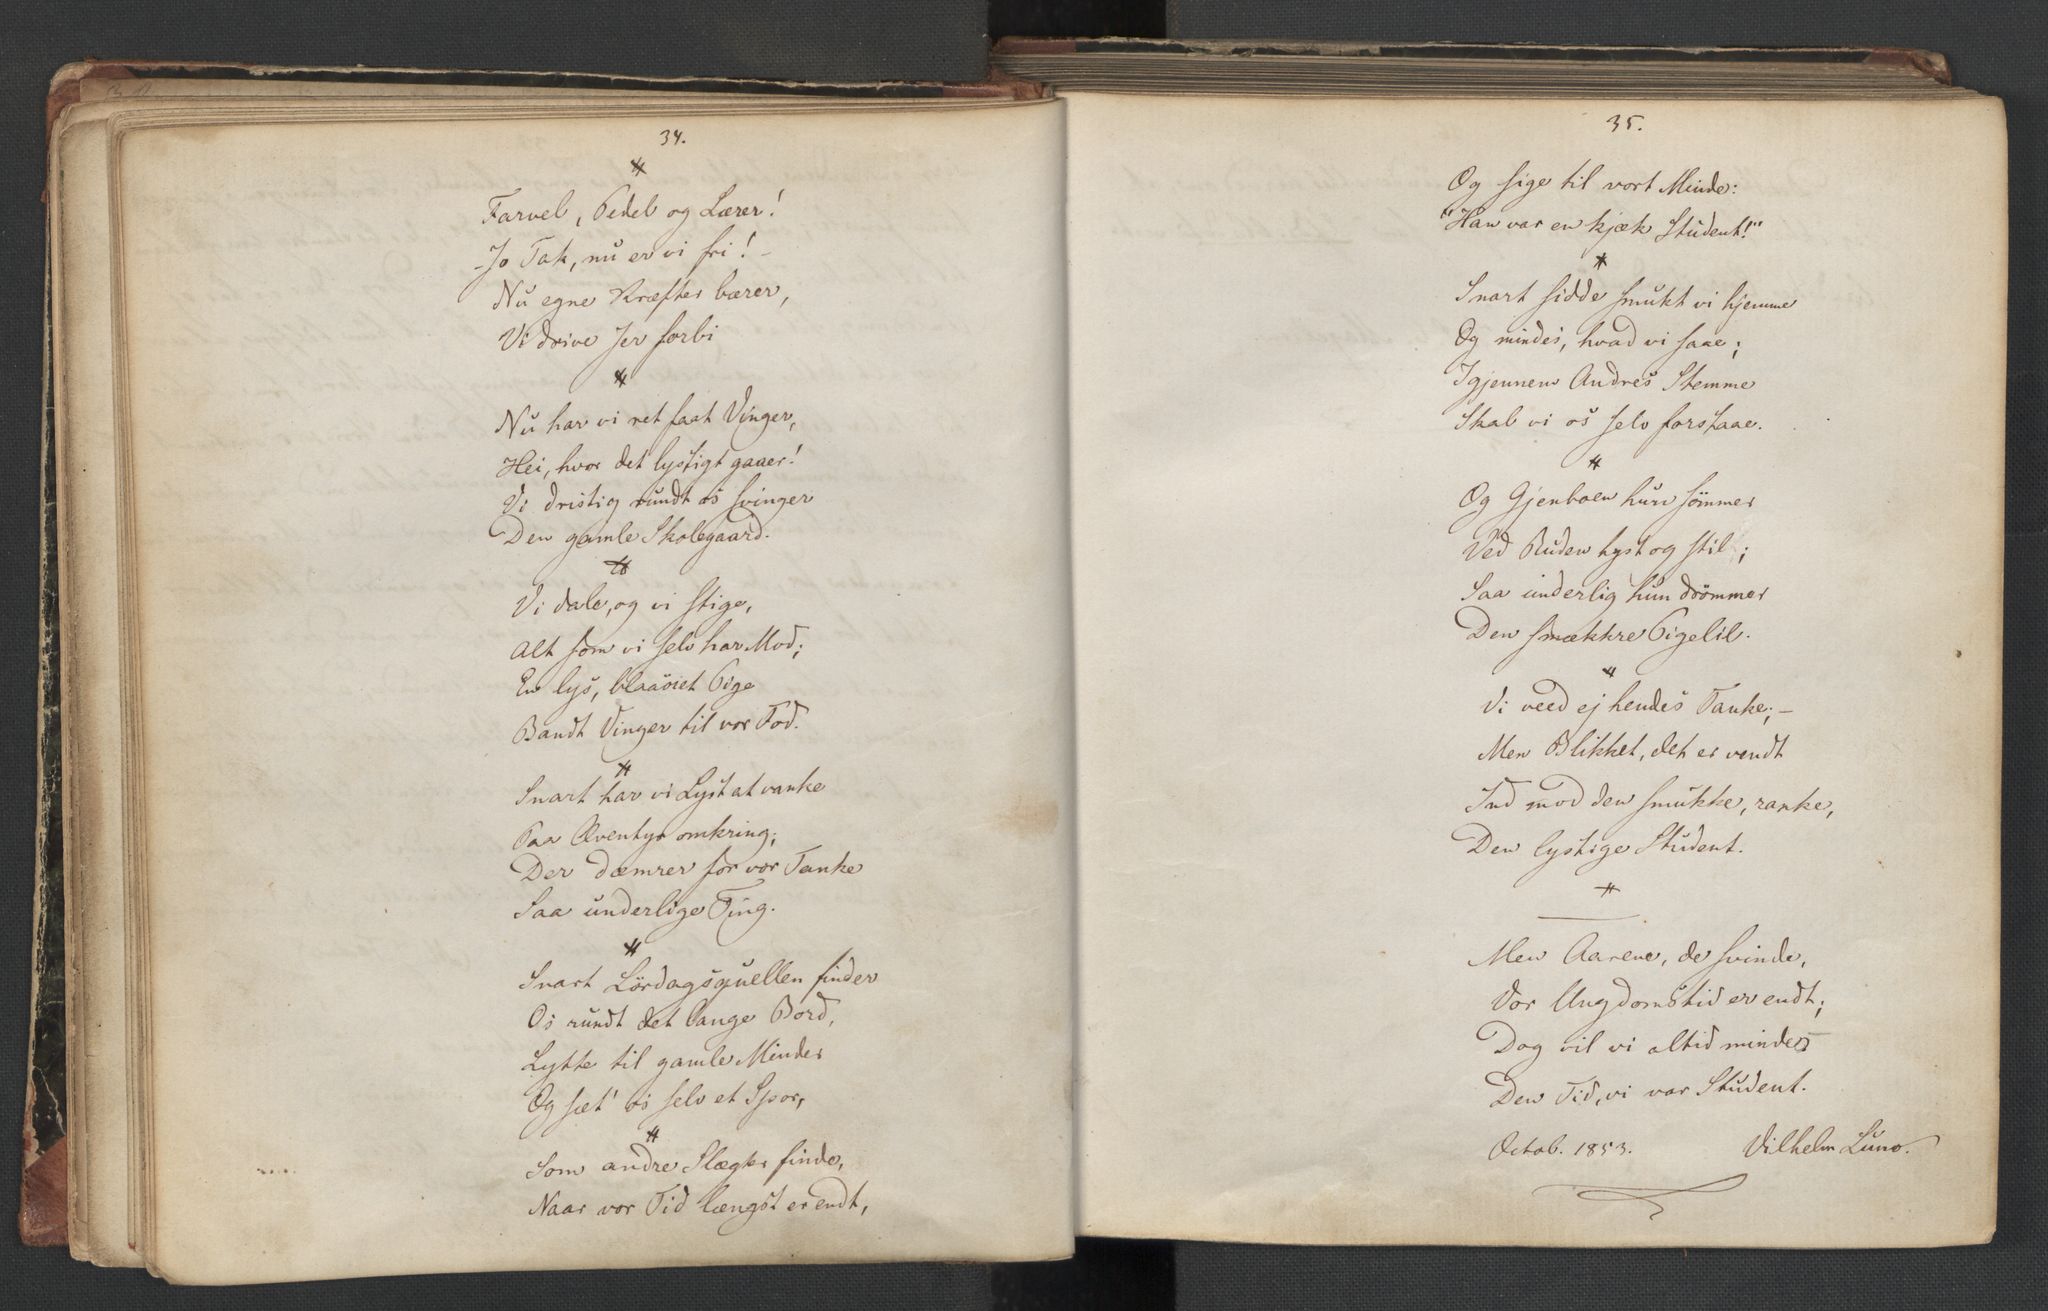 34.
Farvel, Pedel og Lærer!
Jo Tak, nu er vi fri! –
Nu egne Kræfter bærer,
Vi drive Jer forbi
Nu har vi ret faat Vinger,
Hei, hvor det lystigt gaaer!
Vi dristig rundt os svinger
Den gamle Skolegaard.
Vi dale, og vi stige,
Alt som vi selv har Mod;
En lys, blaaöiet Pige
Bandt Vinger til vor Fod.
Snart har vi Lyst at vanke
Paa Æventyr omkring;
Der dæmrer for vor Tanke
Saa underlige Ting.
Snart Lördagsquellen finder
Os rundt det lange Bord,
Lytte til gamle Minder
Og sæt' os selv et Spor,
Som andre Slægter finde,
Naar vor Tid længst er endt,
35.
Og sige til vort Minde:
"Han var en kjæk Student!"
Snart sidde smukt vi hjemme
Og mindes, hvad vi saae;
Igjennem Andres Stemme
Skal vi os selv forstaae.
Og Gjenboen hun sömmer
Ved Ruden tyst og stil;
Saa underlig hun drömmer
Den smækkre Pigelil.
Vi veed ej hendes Tanke; –
Men Blikket, det er vendt
Ind mod den smukke, ranke,
Den lystige Student.
Men Aarene, de svinde,
Vor Ungdomstid er endt;
Dog vil vi altid mindes
Den Tid, vi var Student.
Octob. 1853. Vilhelm Luno.